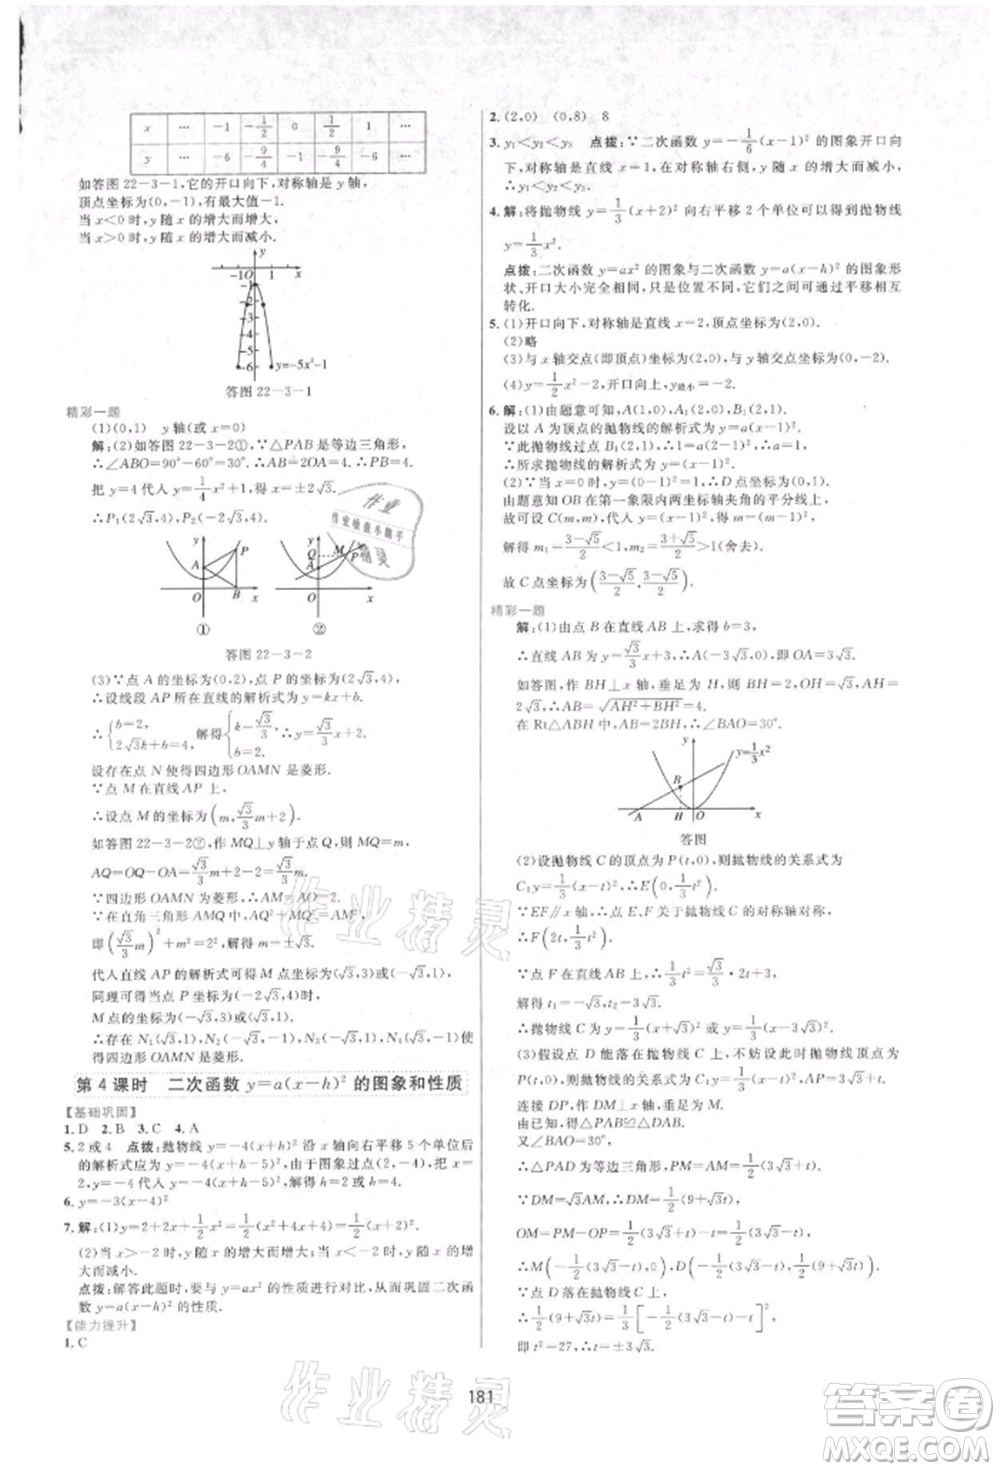 x … -1 -1/2 0 1/2 1 …
y … -6 -9/4 -1 -9/4 -6 …
如答图 22-3-1,它的开口向下,对称轴是 y 轴,
顶点坐标为(0,-1),有最大值-1.
当 x<0 时,y 随 x 的增大而增大;
当 x>0 时,y 随 x 的增大而减小.
y=-5x²-1
答图 22-3-1
精彩一题
(1)(0,1) y 轴(或 x=0)
解:(2)如答图 22-3-2①,∵△PAB 是等边三角形,
∴∠ABO=90°-60°=30°.∴AB=2OA=4.∴PB=4.
把 y=4 代入 y=1/4 x²+1,得 x=±2√3.
∴P₁(2√3,4),P₂(-2√3,4).
① ②
答图 22-3-2
(3)∵点 A 的坐标为(0,2),点 P 的坐标为(2√3,4),
∴设线段 AP 所在直线的解析式为 y=kx+b,
∴{b=2, 2√3k+b=4. 解得{k=√3/3, b=2. ∴y=√3/3 x+2.
设存在点 N 使得四边形 OAMN 是菱形.
∵点 M 在直线 AP 上,
∴设点 M 的坐标为(m,√3/3 m+2).
如答图 22-3-2②,作 MQ⊥y 轴于点 Q,则 MQ=m,
AQ=OQ-OA=√3/3 m+2-2=√3/3 m.
∵四边形 OAMN 为菱形,∴AM=AO=2.
∴在直角三角形 AMQ 中,AQ²+MQ²=AM²,
即(√3/3 m)²+m²=2²,解得 m=±√3.
代入直线 AP 的解析式可得 M 点坐标为(√3,3)或(-√3,1).
同理可得当点 P 坐标为(-2√3,4)时,
M 点的坐标为(-√3,3)或(√3,1).
∴存在 N₁(√3,1),N₂(-√3,-1),N₃(-√3,1),N₄(√3,-1)使得
四边形 OAMN 是菱形.
第 4 课时 二次函数 y=a(x-h)² 的图象和性质
【基础巩固】
1. D 2. B 3. C 4. A
5. 2 或 4 点拨:抛物线 y=-4(x+h)² 沿 x 轴向右平移 5 个单位后
的解析式应为 y=-4(x+h-5)²,由于图象过点(2,-4),所以将
x=2,y=-4 代入 y=-4(x+h-5)²,解得 h=2 或 h=4.
6. y=-3(x-4)²
7. 解:(1)y=2+2x+1/2x²=1/2(x²+4x+4)=1/2(x+2)².
(2)当 x>-2 时,y 随 x 的增大而增大;当 x<-2 时,y 随 x 的增
大而减小.
点拨:解答此题时,要与 y=ax² 的性质进行对比,从而巩固二次函
数 y=a(x-h)² 的性质.
【能力提升】
1. C
2. (2,0) (0,8) 8
3. y₁<y₂<y₃ 点拨:∵二次函数 y=-1/6(x-1)² 的图象开口向
下,对称轴是直线 x=1,∴在对称轴右侧,y 随 x 的增大而减小,
∴y₁<y₂<y₃.
4. 解:将抛物线 y=1/3(x+2)² 向右平移 2 个单位可以得到抛物线
y=1/3x².
点拨:二次函数 y=ax² 的图象与二次函数 y=a(x-h)² 的图象形
状、开口大小完全相同,只是位置不同,它们之间可通过平移相互
转化.
5. (1)开口向下,对称轴是直线 x=2,顶点坐标为(2,0).
(2)略
(3)与 x 轴交点(即顶点)坐标为(2,0),与 y 轴交点坐标为(0,-2).
6. 解:(1)由题意可知,A(1,0),A₁(2,0),B₁(2,1).
设以 A 为顶点的抛物线的解析式为 y=a(x-1)².
∵此抛物线过点 B₁(2,1),∴1=a(2-1)².∴a=1.
∴所求抛物线的解析式为 y=(x-1)².
(2)∵当 x=0 时,y=(0-1)²=1,∴D 点坐标为(0,1).
由题意知 OB 在第一象限内两坐标轴夹角的平分线上,
故可设 C(m,m),代入 y=(x-1)²,得 m=(m-1)²,
解得 m₁=(3-√5)/2<1,m₂=(3+√5)/2>1(舍去).
故 C 点坐标为((3-√5)/2,(3-√5)/2).
精彩一题
解:(1)由点 B 在直线 AB 上,求得 b=3,
∴直线 AB:y=√3/3 x+3,∴A(-3√3,0),即 OA=3√3.
如答图,作 BH⊥x 轴,垂足为 H,则
2√3,AB=√(AH²+BH²)=4.
在 Rt△ABH 中,AB=2BH,∴∠BAO=30°.
y=1/3x²
答图
(2)设抛物线 C 的顶点为 P(t,0),则抛物线的关系式为
∵EF∥x 轴,∴点 E、F 关于抛物线 C 的对称轴对称,
∴F(2t,1/3t²).
∵点 F 在直线 AB 上,∴1/3t²=√3/3·2t+3,
解得 t₁=-√3,t₂=3√3.
∴抛物线 C 为 y=1/3(x+√3)² 或 y=1/3(x-3√3)².
(3)假设点 D 能落在抛物线 C 上,
连接 DP,作 DM⊥x 轴,垂足为 M.
由已知,得△PAB≌△DAB,
又∠BAO=30°,
∴△PAD 为等边三角形,PM=AM=1/2(t+3√3).
OM=PM-OP=1/2(t+3√3)-t=
∵点 D 落在抛物线 C 上,
即 t²=27,t=±3√3.
181
作业精灵
答案圈
MXQE.COM